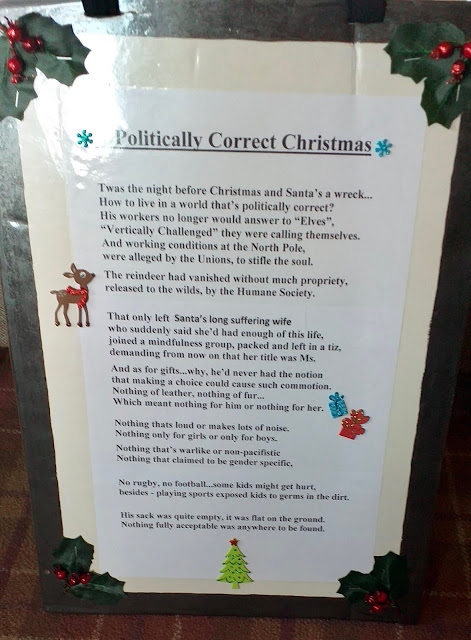 Politically Correct Christmas
Twas the night before Christmas and Santa's a wreck...
How to live in a world that's politically correct?
His workers no longer would answer to "Elves",
"Vertically Challenged" they were calling themselves.
And working conditions at the North Pole,
were alleged by the Unions, to stifle the soul.
The reindeer had vanished without much propriety,
released to the wilds, by the Humane Society.
That only left Santa's long suffering wife
who suddenly said she'd had enough of this life,
joined a mindfulness group, packed and left in a tiz,
demanding from now on that her title was Ms.
And as for gifts...why, he'd never had the notion
that making a choice could cause such commotion.
Nothing of leather, nothing of fur...
Which meant nothing for him or nothing for her.
Nothing thats loud or makes lots of noise.
Nothing only for girls or only for boys.
Nothing that's warlike or non-pacifistic
Nothing that claimed to be gender specific,
No rugby, no football...some kids might get hurt,
besides - playing sports exposed kids to germs in the dirt.
His sack was quite empty, it was flat on the ground.
Nothing fully acceptable was anywhere to be found.